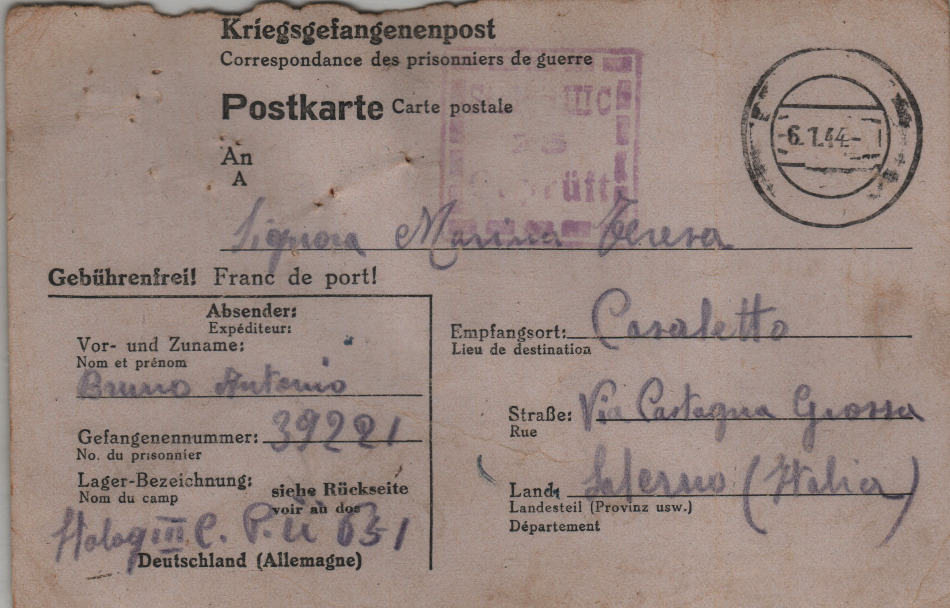 Kriegsgefangenenpost
Correspondance des prisonniers de guerre
Postkarte Carte postale
IIIC
An
A
6.1.44-
Signora Marina Teresa
Gebührenfrei! Franc de port!
Absender:
Expéditeur:
Vor- und Zuname:
Nom et prénom
Bruno Antonio
Gefangenennummer: 39221
No. du prisonnier
Lager-Bezeichnung:
Nom du camp
siehe Rückseite
voir au dos
Stalag III C.
Deutschland (Allemagne)
Empfangsort: Casaletto
Lieu de destination
Straße: Via Castagna Grossa
Rue
Land: Salerno (Italia)
Landesteil (Provinz usw.)
Département